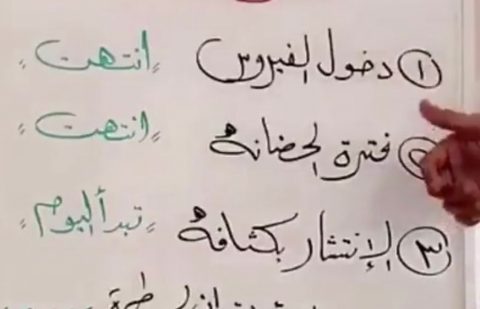 ١ دخول الفيروس "انتهت"
٢ فترة الحضانة "انتهت"
٣ الإنتشار بكثافة "تبدأ اليوم"